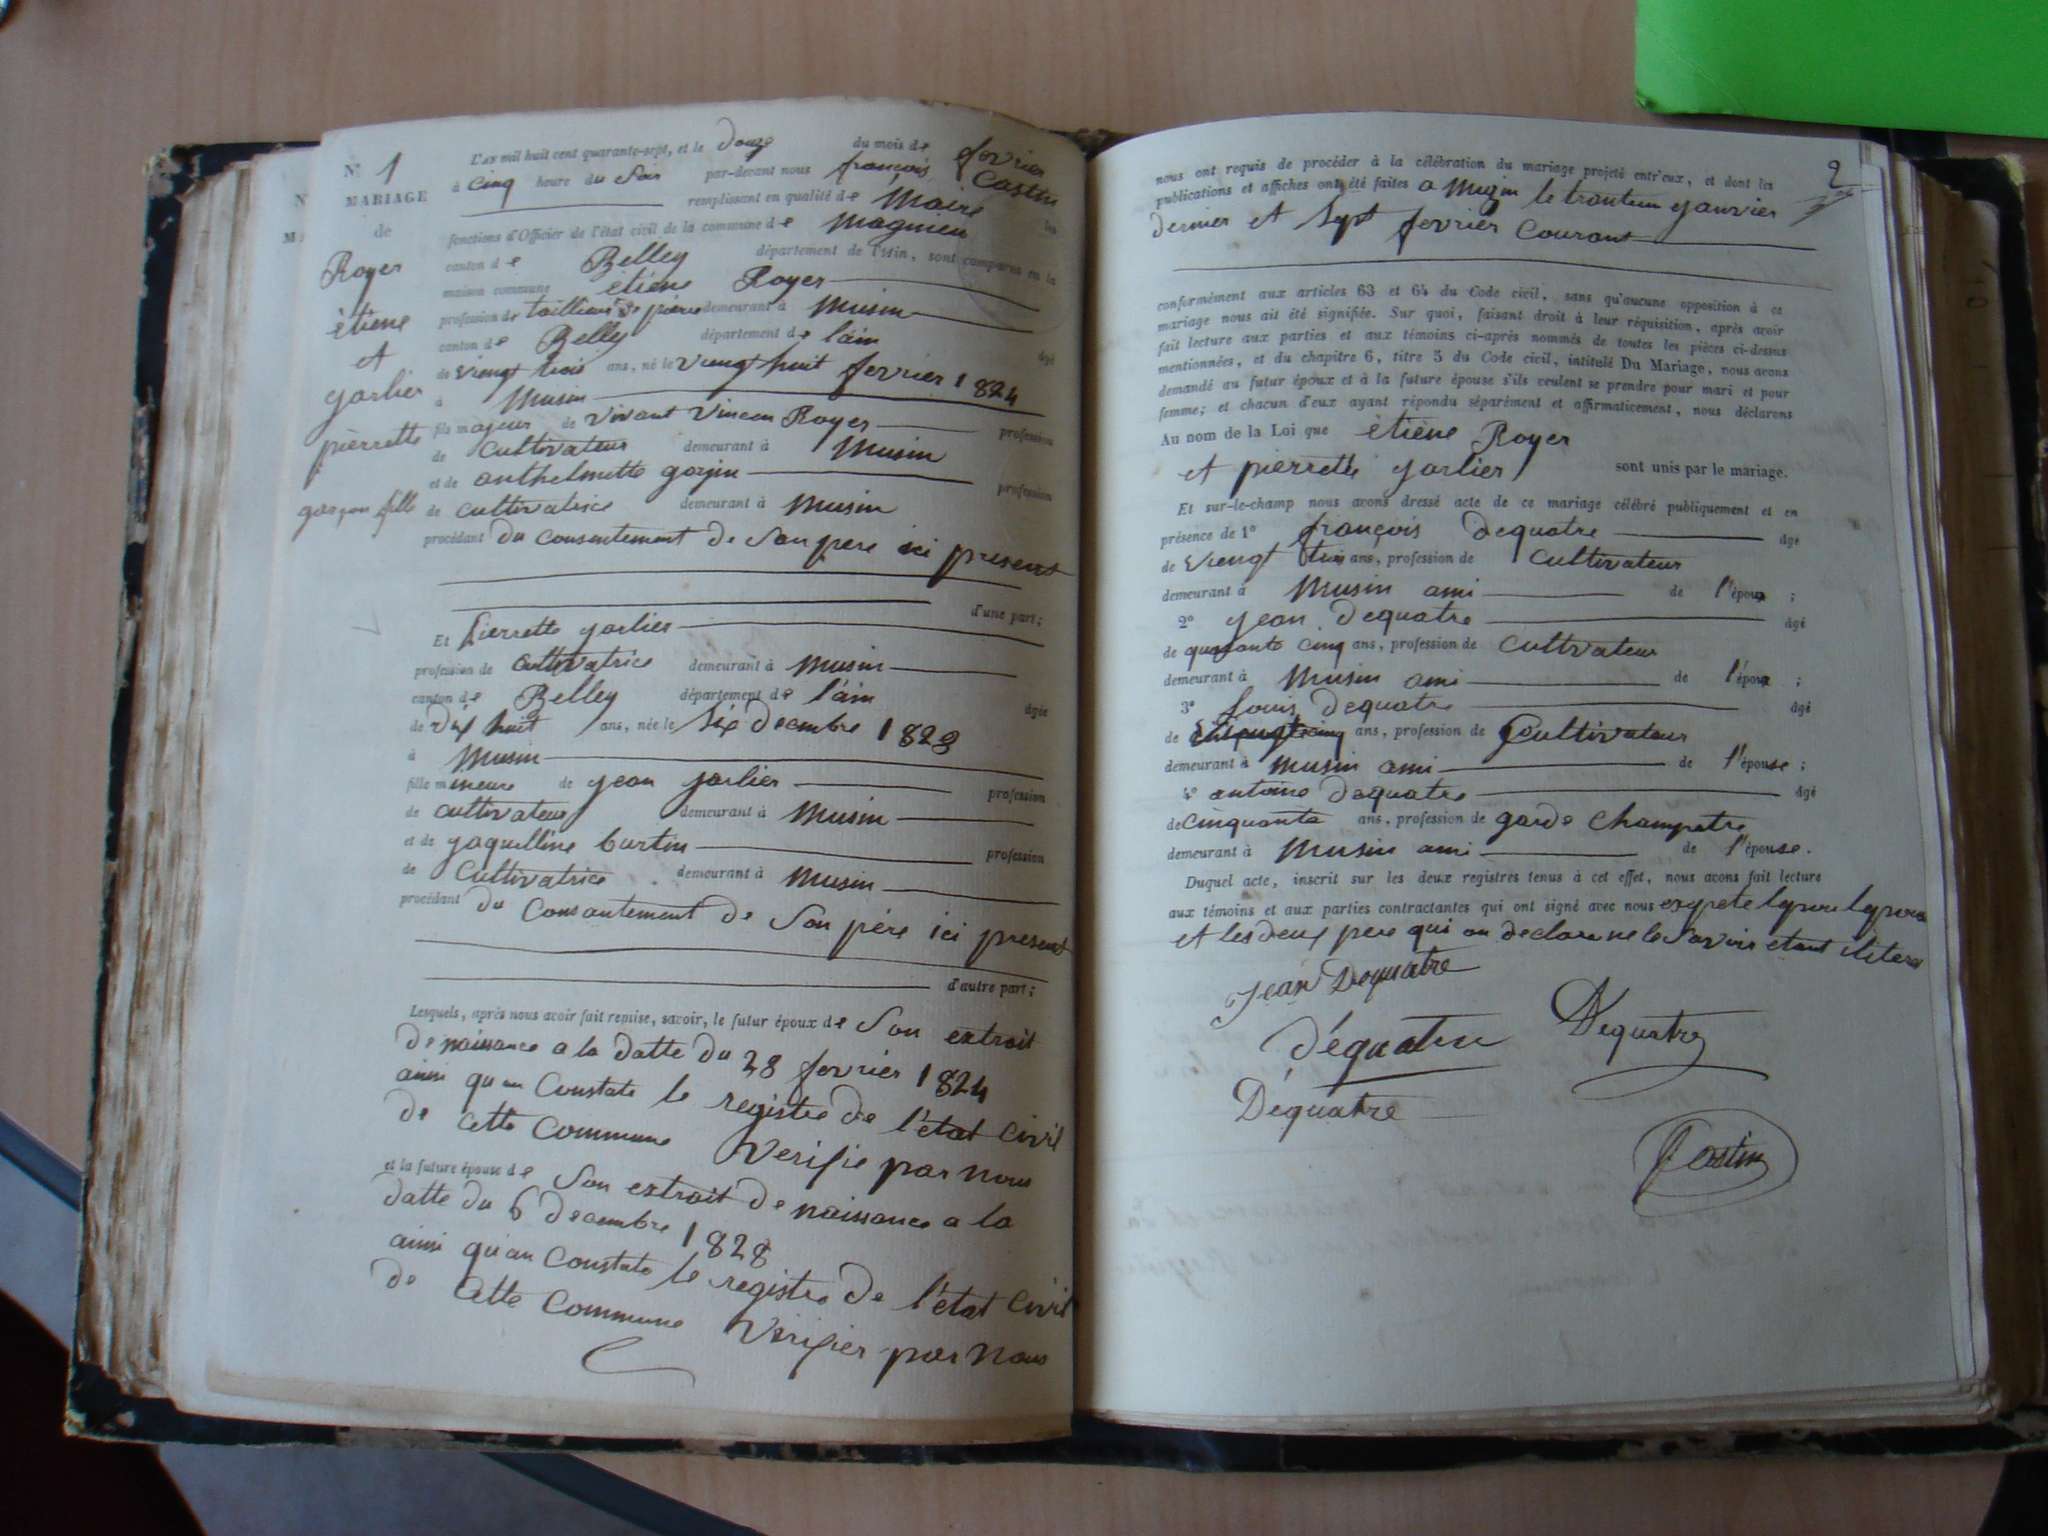 N° 1
MARIAGE
de
Royer
ètiene
et
yarlier
pièrrette
garçon fille
L'an mil huit cent quarante-sept, et le douze du mois de fevrier
à cinq heure du soir par-devant nous françois Castin
remplissant en qualité de Maire les
fonctions d'Officier de l'état civil de la commune de magnieu
canton de Belley département de l'Ain, sont comparus en la
maison commune ètiene Royer
profession de taillieur de pierre demeurant à musin
canton de Belley département de l'ain âgé
de viengt trois ans, né le viengt huit fevrier 1824
à Musin
fils majeur de vivant vincen Royer profession
de cultivateur demeurant à Musin
et de anthelmette gojin profession
de cultivatrice demeurant à Musin
procédant du consentement de son pere ici present
d'une part;
Et pierrette yarlier
profession de cultivatrice demeurant à Musin
canton de Belley département de l'ain âgée
de dix huit ans, née le six decembre 1828
à Musin
fille mineure de yean yarlier profession
de cultivateur demeurant à Musin
et de yaquelline burtin profession
de Cultivatrice demeurant à Musin
procédant du consantement de son père ici present
d'autre part;
Lesquels, après nous avoir fait remise, savoir, le futur époux de son extrait
de naissance a la datte du 28 fevrier 1824
ainsi qu'an Constate le registre de l'état civil
de cette commune Verifie par nous
et la future épouse de son extrait de naissance a la
datte du 6 decembre 1828
ainsi qu'an Constate le registre de l'état civil
de cette commune Vérifier par nous
2
nous ont requis de procéder à la célébration du mariage projeté entr'eux, et dont les
publications et affiches ont été faites a Muzin le trantun yanvier
dernier et sept fevrier courant
conformément aux articles 63 et 64 du Code civil, sans qu'aucune opposition à ce
mariage nous ait été signifiée. Sur quoi, faisant droit à leur réquisition, après avoir
fait lecture aux parties et aux témoins ci-après nommés de toutes les pièces ci-dessus
mentionnées, et du chapitre 6, titre 5 du Code civil, intitulé Du Mariage, nous avons
demandé au futur époux et à la future épouse s'ils veulent se prendre pour mari et pour
femme; et chacun d'eux ayant répondu séparément et affirmativement, nous déclarons
Au nom de la Loi que ètiène Royer
et pierrette yarlier sont unis par le mariage.
Et sur-le-champ nous avons dressé acte de ce mariage célébré publiquement et en
présence de 1° françois dequatre âgé
de viengt ans, profession de cultivateur
demeurant à Musin ami de l'époux ;
2° yean dequatre âgé
de quarante cinq ans, profession de cultivateur
demeurant à Musin ami de l'époux ;
3° Louis dequatre âgé
de ans, profession de Cultivateur
demeurant à musin ami de l'épouse ;
4° antoine dequatre âgé
de cinquante ans, profession de garde champetre
demeurant à Musin ami de l'épouse.
Duquel acte, inscrit sur les deux registres tenus à cet effet, nous avons fait lecture
aux témoins et aux parties contractantes qui ont signé avec nous
et les deux pere qui on declare ne le savoir etant
Jean Dequatre
déquatre Dequatre
Déquatre
Castin